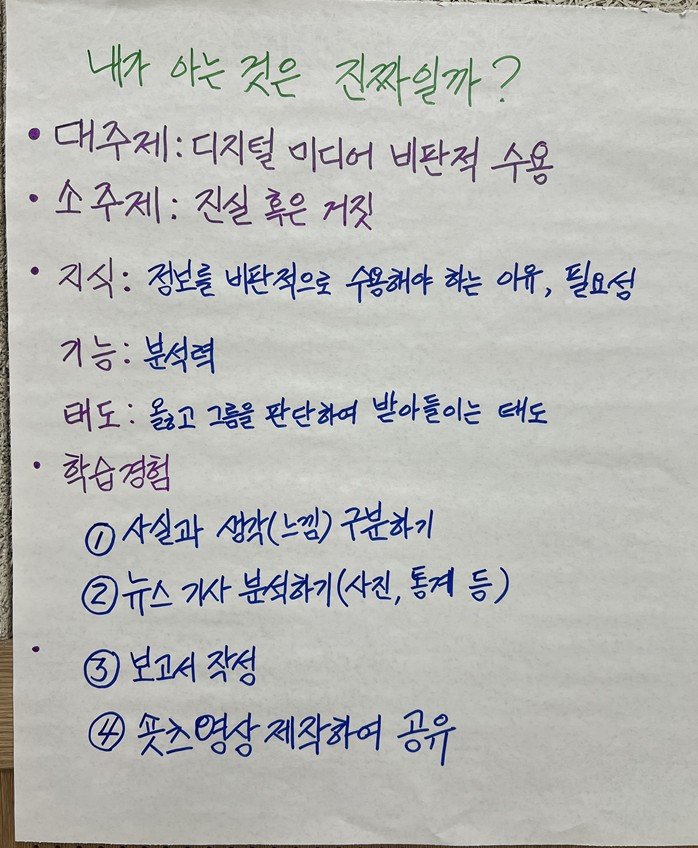 내가 아는 것은 진짜일까?
• 대주제: 디지털 미디어 비판적 수용
• 소주제: 진실 혹은 거짓
• 지식: 정보를 비판적으로 수용해야 하는 이유, 필요성
기능: 분석력
태도: 옳고 그름을 판단하여 받아들이는 태도
• 학습경험
① 사실과 생각(느낌) 구분하기
② 뉴스 기사 분석하기(사진, 통계 등)
• ③ 보고서 작성
④ 숏츠영상 제작하여 공유